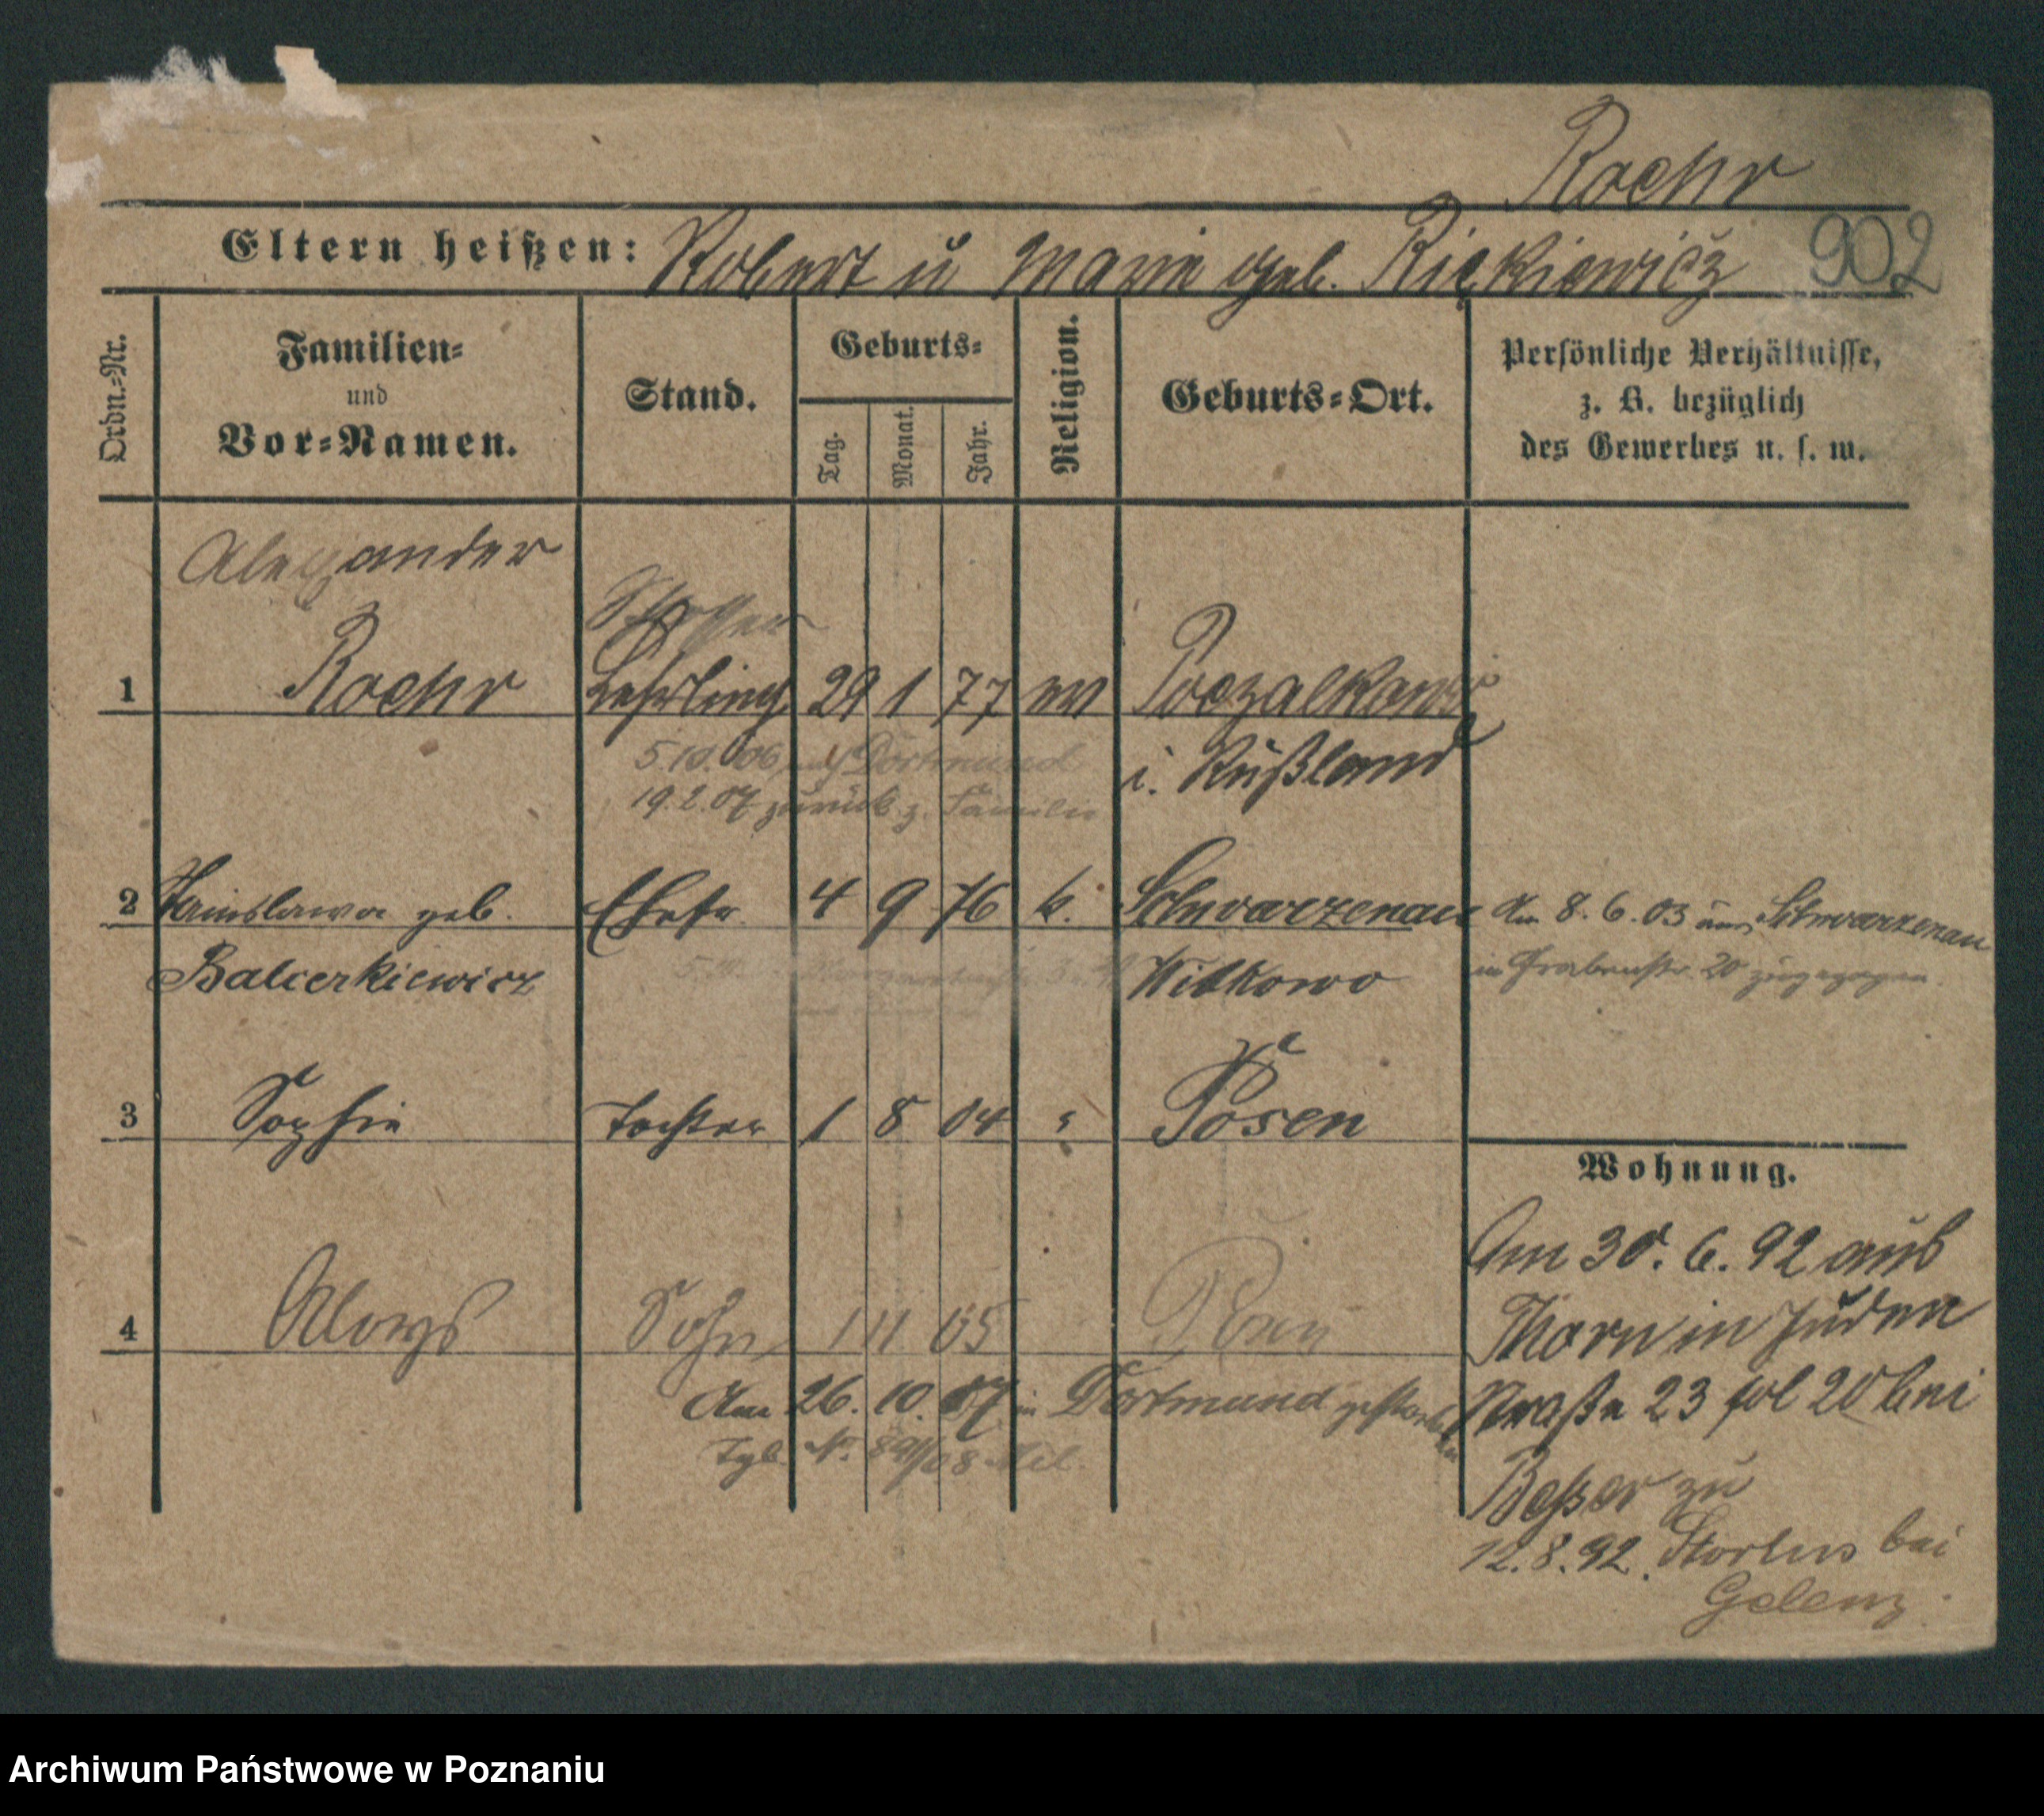 Roehr
Eltern heißen: Robert u Marie geb. Rickiewicz 902
Ordn.-Nr.
Familien-
und
Vor-Namen.
Stand.
Geburts-
Tag.
Monat.
Jahr.
Religion.
Geburts-Ort.
Persönliche Verhältnisse,
z. B. bezüglich
des Gewerbes u. s. w.
Alexander
1 Roehr Lehrling 29 1 77 Poczalkowo
i. Rußland
5.10.06 nach Dortmund
19.2.07 zurück z. Familie
2 geb. Ehefr. 4 9 76 k. Schwarzenau
Am 8.6.03 aus Schwarzenau
Balcerkiewicz Witkowo
in Grabenstr. 20 zugezogen.
3 Sophie Tochter 1 8 04 " Posen
Wohnung.
4 Aloys Sohn 1 11 05 Posen
Am 26. 10. 07 in Dortmund gestorben
Tgb. No.
Am 30. 6. 92 aus
Thorn in Juden
Straße 23 bei
Besser zu
12.8.92. bei
Gelenz.
Archiwum Państwowe w Poznaniu